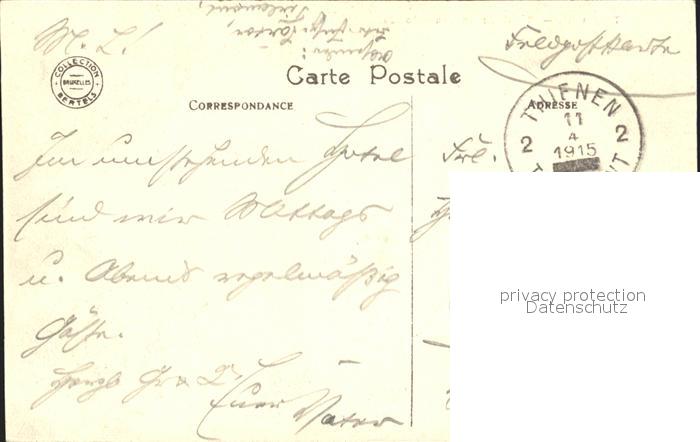 M. L!
Absender:
Tirlemont,
Feldpostkarte
COLLECTION
BRUXELLES
BERTELS
Carte Postale
CORRESPONDANCE
ADRESSE
THIENEN
11
4
1915
2 2
Im umstehenden Hotel
sind wir Mittags
u. Abends regelmäßig
Gäste.
Herzl. Gr.
Euer Vater
Frl.
privacy protection
Datenschutz